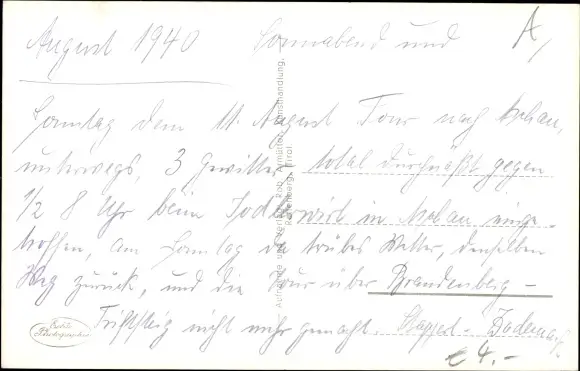 August 1940 Sonnabend und
A,
Sonntag dem 11. August Tour nach Aschau,
unterwegs, 3 Gewitter total durchnäßt gegen
1/2 8 Uhr beim Jodlerwirt in Aschau einge-
troffen, am Sonntag da trübes Wetter, denselben
Weg zurück, und die Tour über Brandenberg -
nicht mehr gemacht.
€ 4.-
Aufnahme und Verlag Rob. Armütter, Kunsthandlung,
Rattenberg, Tirol
Echte
Photographie